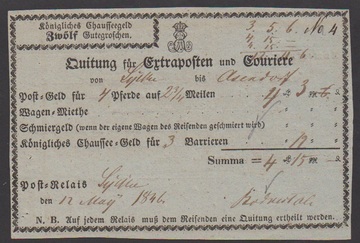 Königliches Chausseegeld
Zwölf Gutegroschen.
3. 5. 6. No. 4
Quitung für Extraposten und Couriere
von Syke bis Asendorf
Post-Geld für 4 Pferde auf 2¾ Meilen 4 3
Wagen-Miethe
Schmiergeld (wenn der eigene Wagen des Reisenden geschmiert wird)
Königliches Chaussee-Geld für 3 Barrieren 12
Summa = 4 15
Post-Relais Syke
den 12 May 1846.
N. B. Auf jedem Relais muß dem Reisenden eine Quitung ertheilt werden.